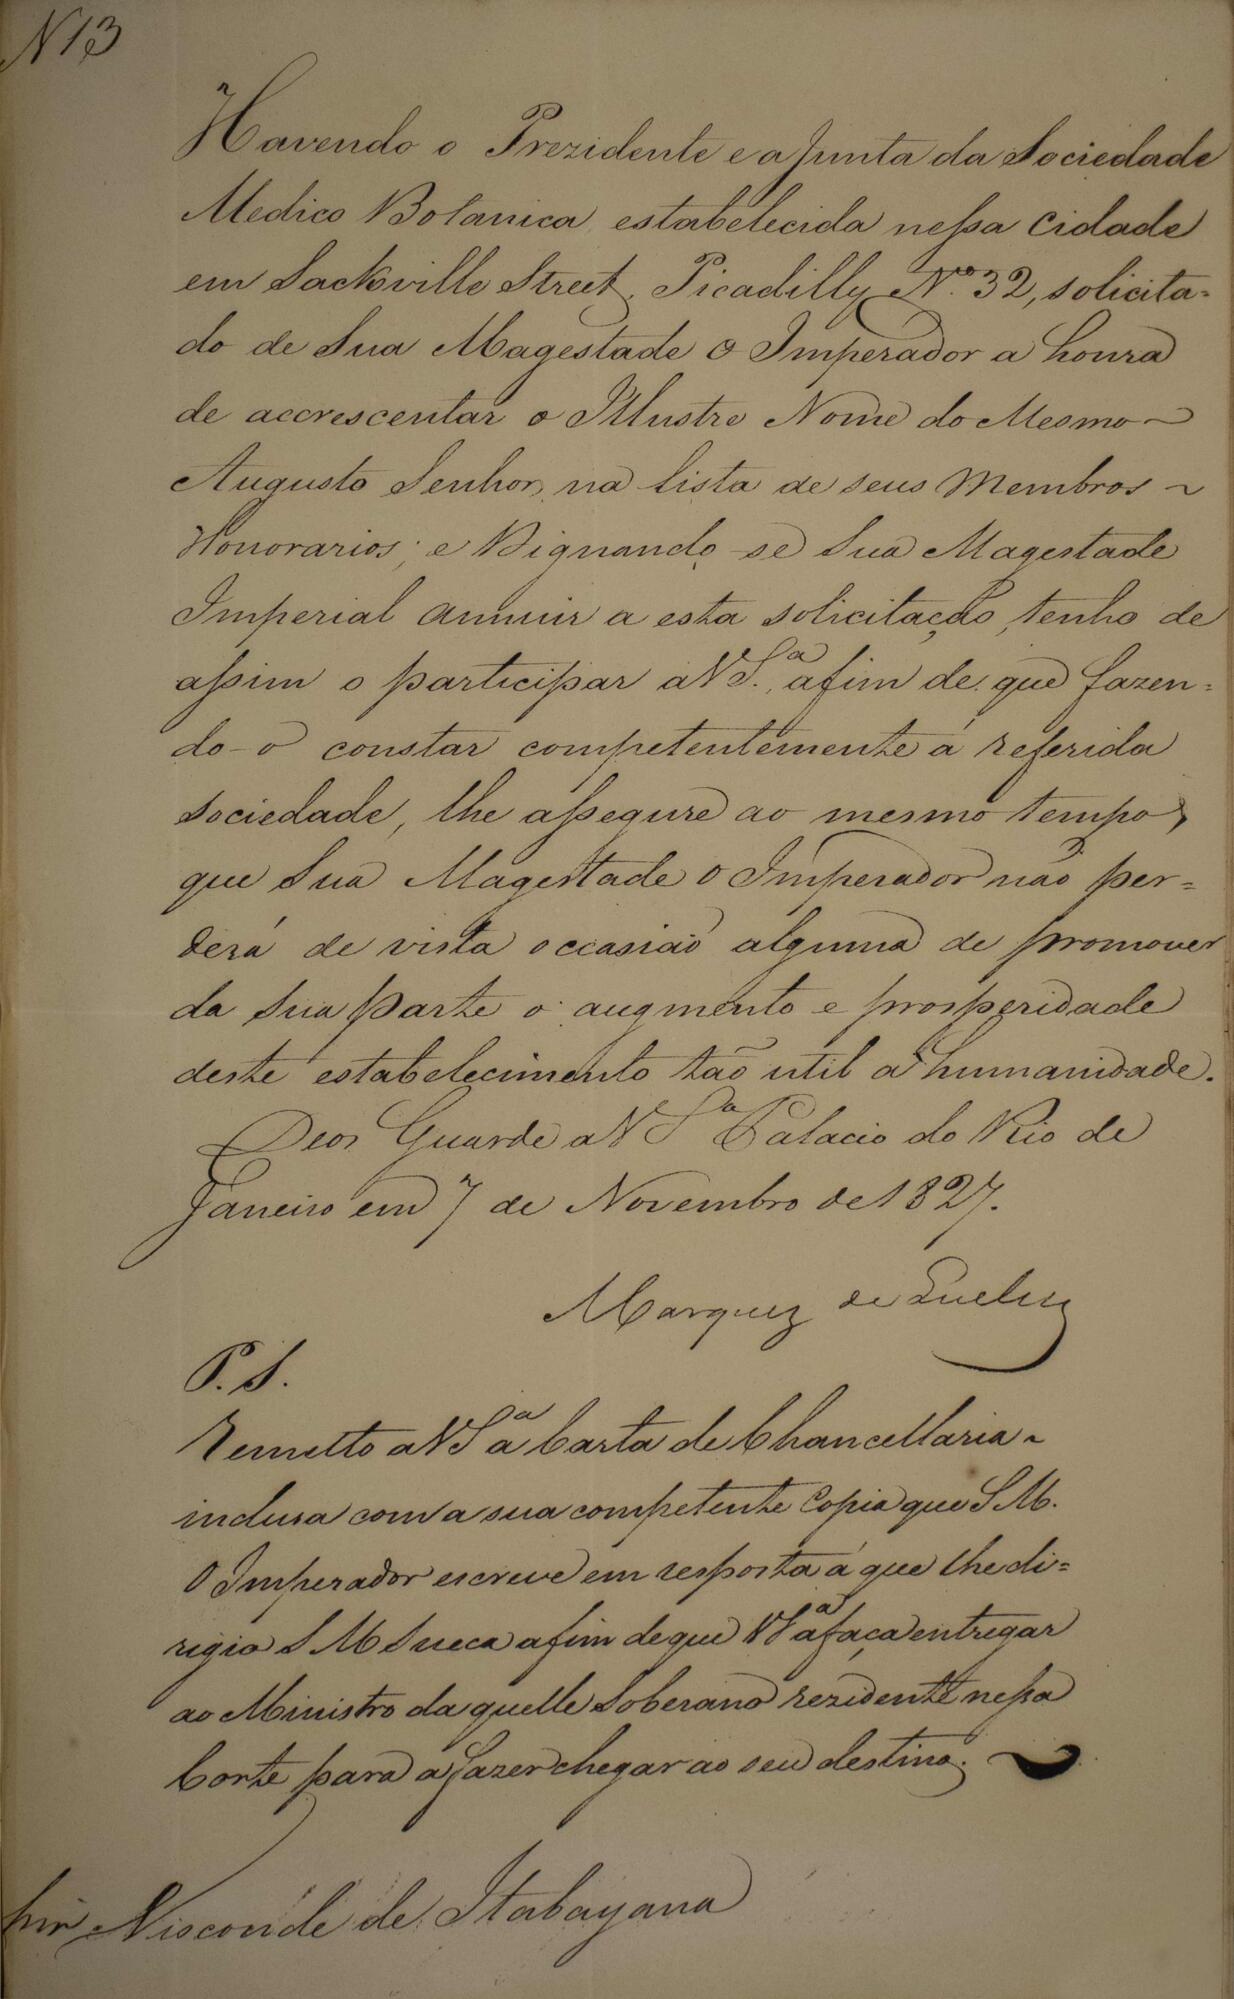 N 13
Havendo o Prezidente e a Junta da Sociedade
Medico Botanica, estabelecida nessa Cidade
em Sackville Street, Picadilly Nº 32, solicita-
do de Sua Magestade O Imperador a honra
de accrescentar o Illustre Nome do Mesmo
Augusto Senhor, na Lista de seus Membros
Honorarios; e Dignando-se Sua Magestade
Imperial annuir a esta solicitação, tenho de
assim o participar a V Sª, afim de que fazen-
do-o constar competentemente á referida
Sociedade, lhe assegure ao mesmo tempo,
que Sua Magestade O Imperador não per-
derá de vista occasião alguma de promover
da Sua parte o augmento e prosperidade
deste estabelecimento tão util á humanidade.
Deos Guarde a V Sª Palacio do Rio de
Janeiro em 7 de Novembro de 1827.
Marquez de Queluz
P. S.
Remetto a V Sª a Carta de Chancellaria
inclusa com a sua competente Copia que S M.
O Imperador escreve em resposta á que lhe di-
rigio S M Sueca afim de que V Sª a faça entregar
ao Ministro daquelle Soberano rezidente nessa
Corte para a fazer chegar ao seu destino.
Visconde de Itabayana